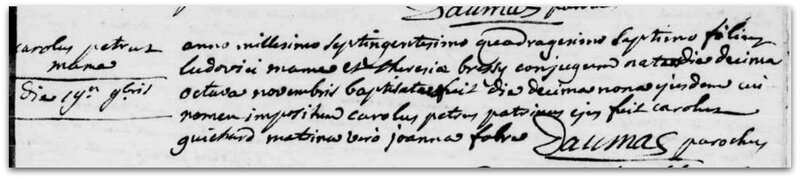 Daumas parochus
carolus petrus
mame
die 19a 9bris
anno millesimo septingentesimo quadragesimo septimo filius
ludovici mame et theresiæ bressy conjugum natus die decima
octava novembris baptisatus fuit die decima nona ejusdem cui
nomen impositum carolus petrus patrinus ejus fuit carolus
guichard matrina vero joanna fabre Daumas parochus